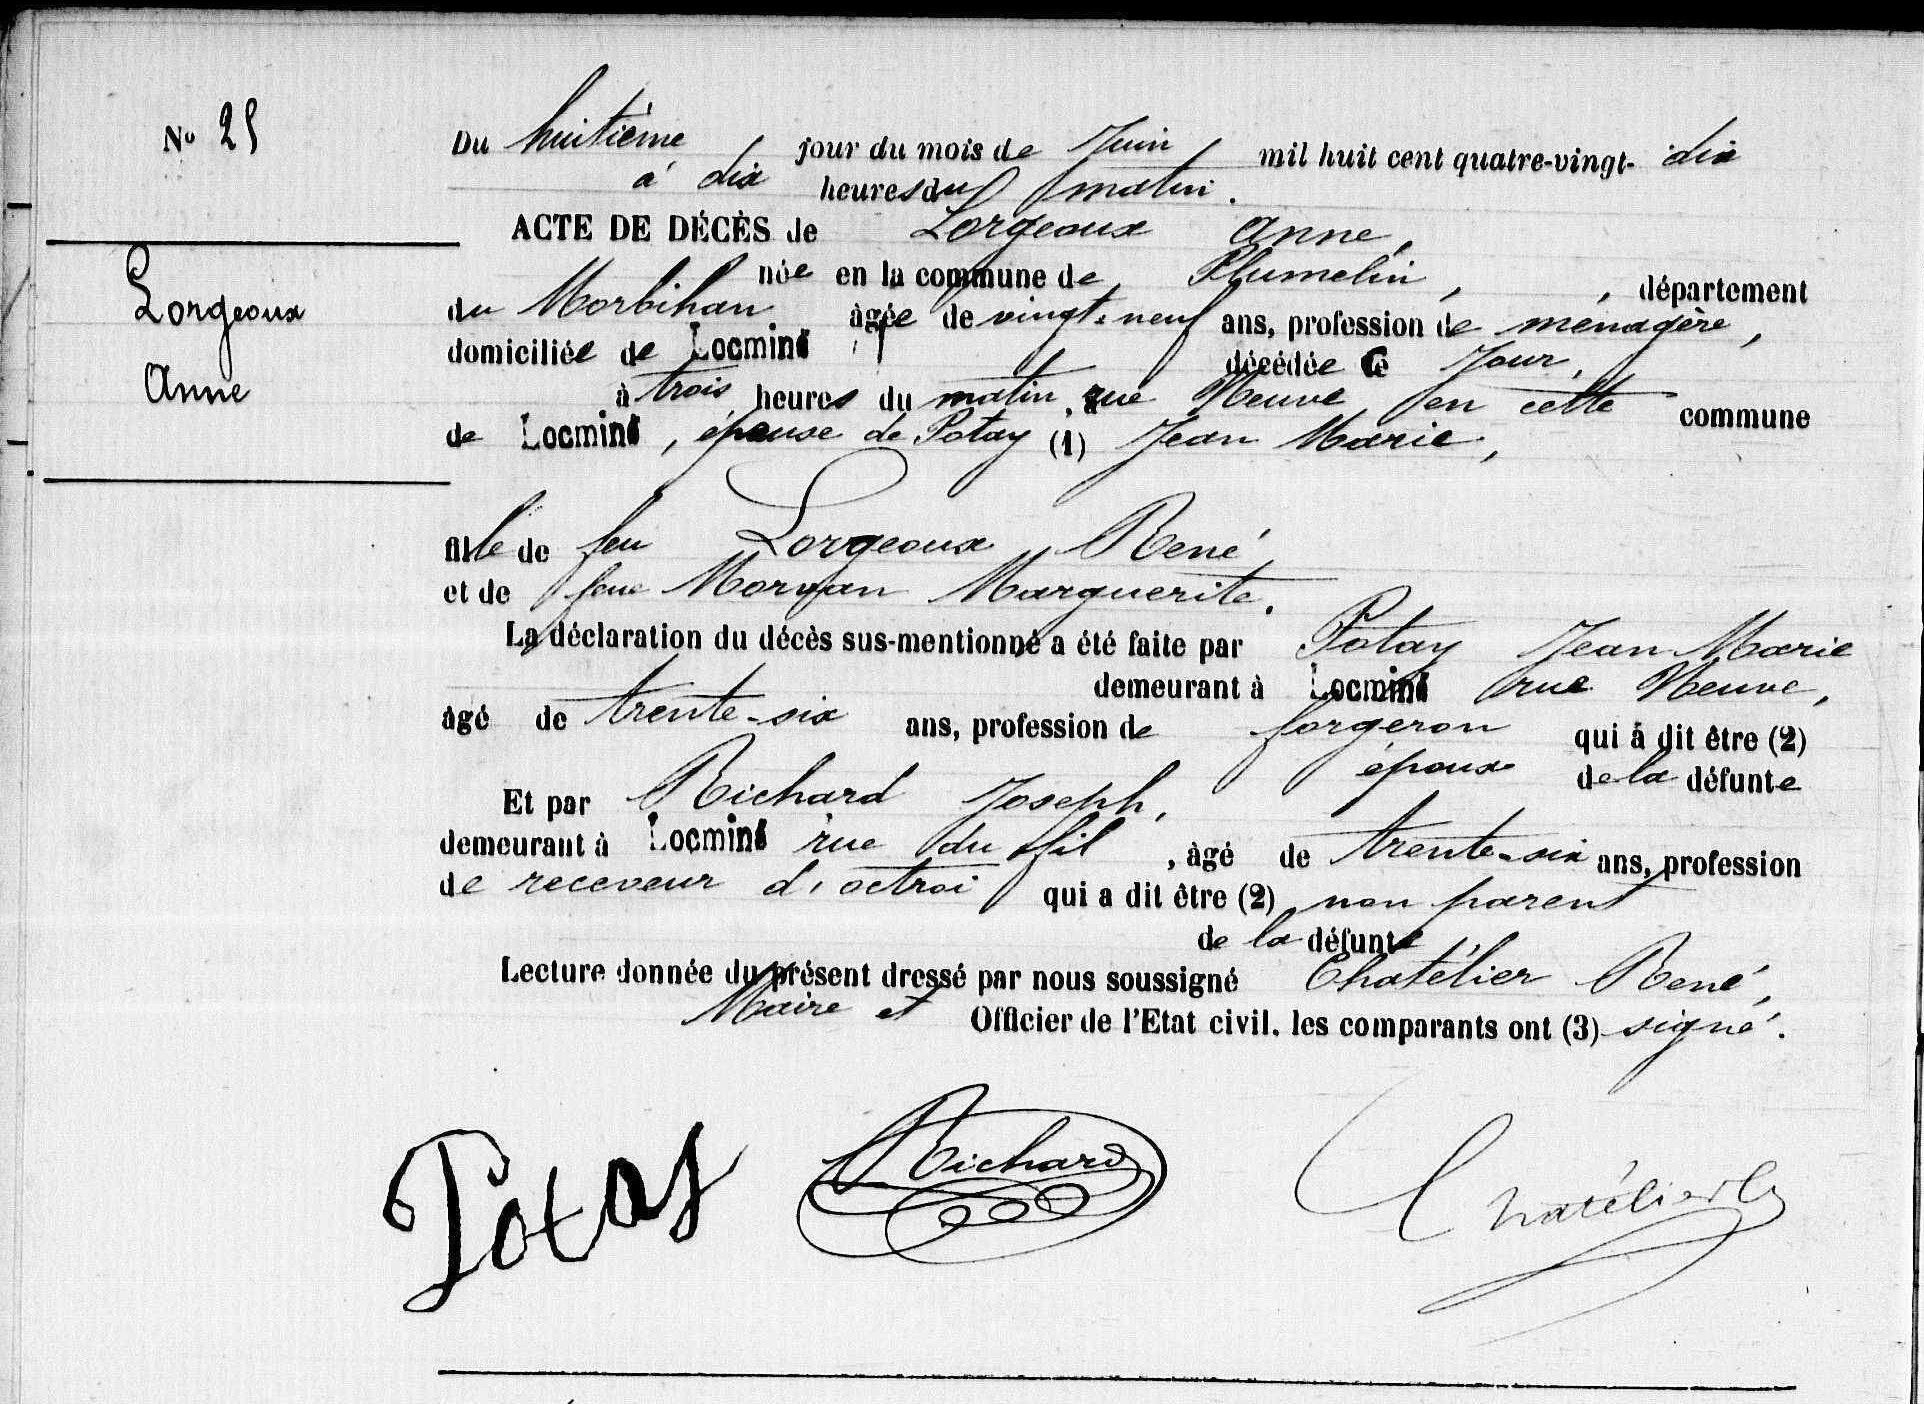 No 25
Lorgeoux
Anne
Du huitième jour du mois de Juin mil huit cent quatre-vingt- dix
à dix heures du matin.
ACTE DE DÉCÈS de Lorgeoux Anne,
née en la commune de Plumelin, , département
du Morbihan âgée de vingt-neuf ans, profession de ménagère,
domiciliée de Locminé décédée ce Jour,
à trois heures du matin, rue Neuve en cette commune
de Locminé, épouse de Potay (1) Jean Marie,
fille de feu Lorgeoux René
et de feue Morvan Marguerite.
La déclaration du décès sus-mentionné a été faite par Potay Jean Marie
demeurant à Locminé rue Neuve,
âgé de trente-six ans, profession de forgeron qui a dit être (2)
époux de la défunte
Et par Richard Joseph,
demeurant à Locminé rue du fil, âgé de trente-six ans, profession
de receveur d'octroi qui a dit être (2) non parent
de la défunte
Lecture donnée du présent dressé par nous soussigné Chatélier René,
Maire et Officier de l'Etat civil, les comparants ont (3) signé.
Richard